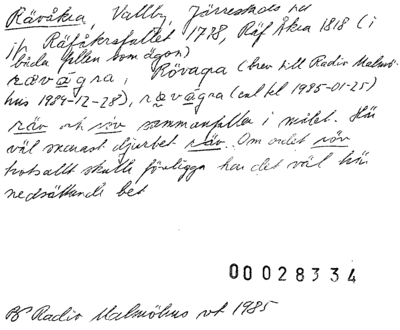 Rävåkra, Vallby, Järrestads hd
Räfåkrafallet 1778, Räf Åkra 1818 (i
båda fallen som ägon)
rævagra, Rövagra (brev till Radio Malmö-
hus 1984-12-28), rævågra (enl tel 1985-01-25)
räv och röv sammanfaller i målet. Här
väl snarast djurbet räv. Om ordet röv
trots allt skulle föreligga har det väl här
nedsättande bet
00028334
Radio Malmöhus vt 1985